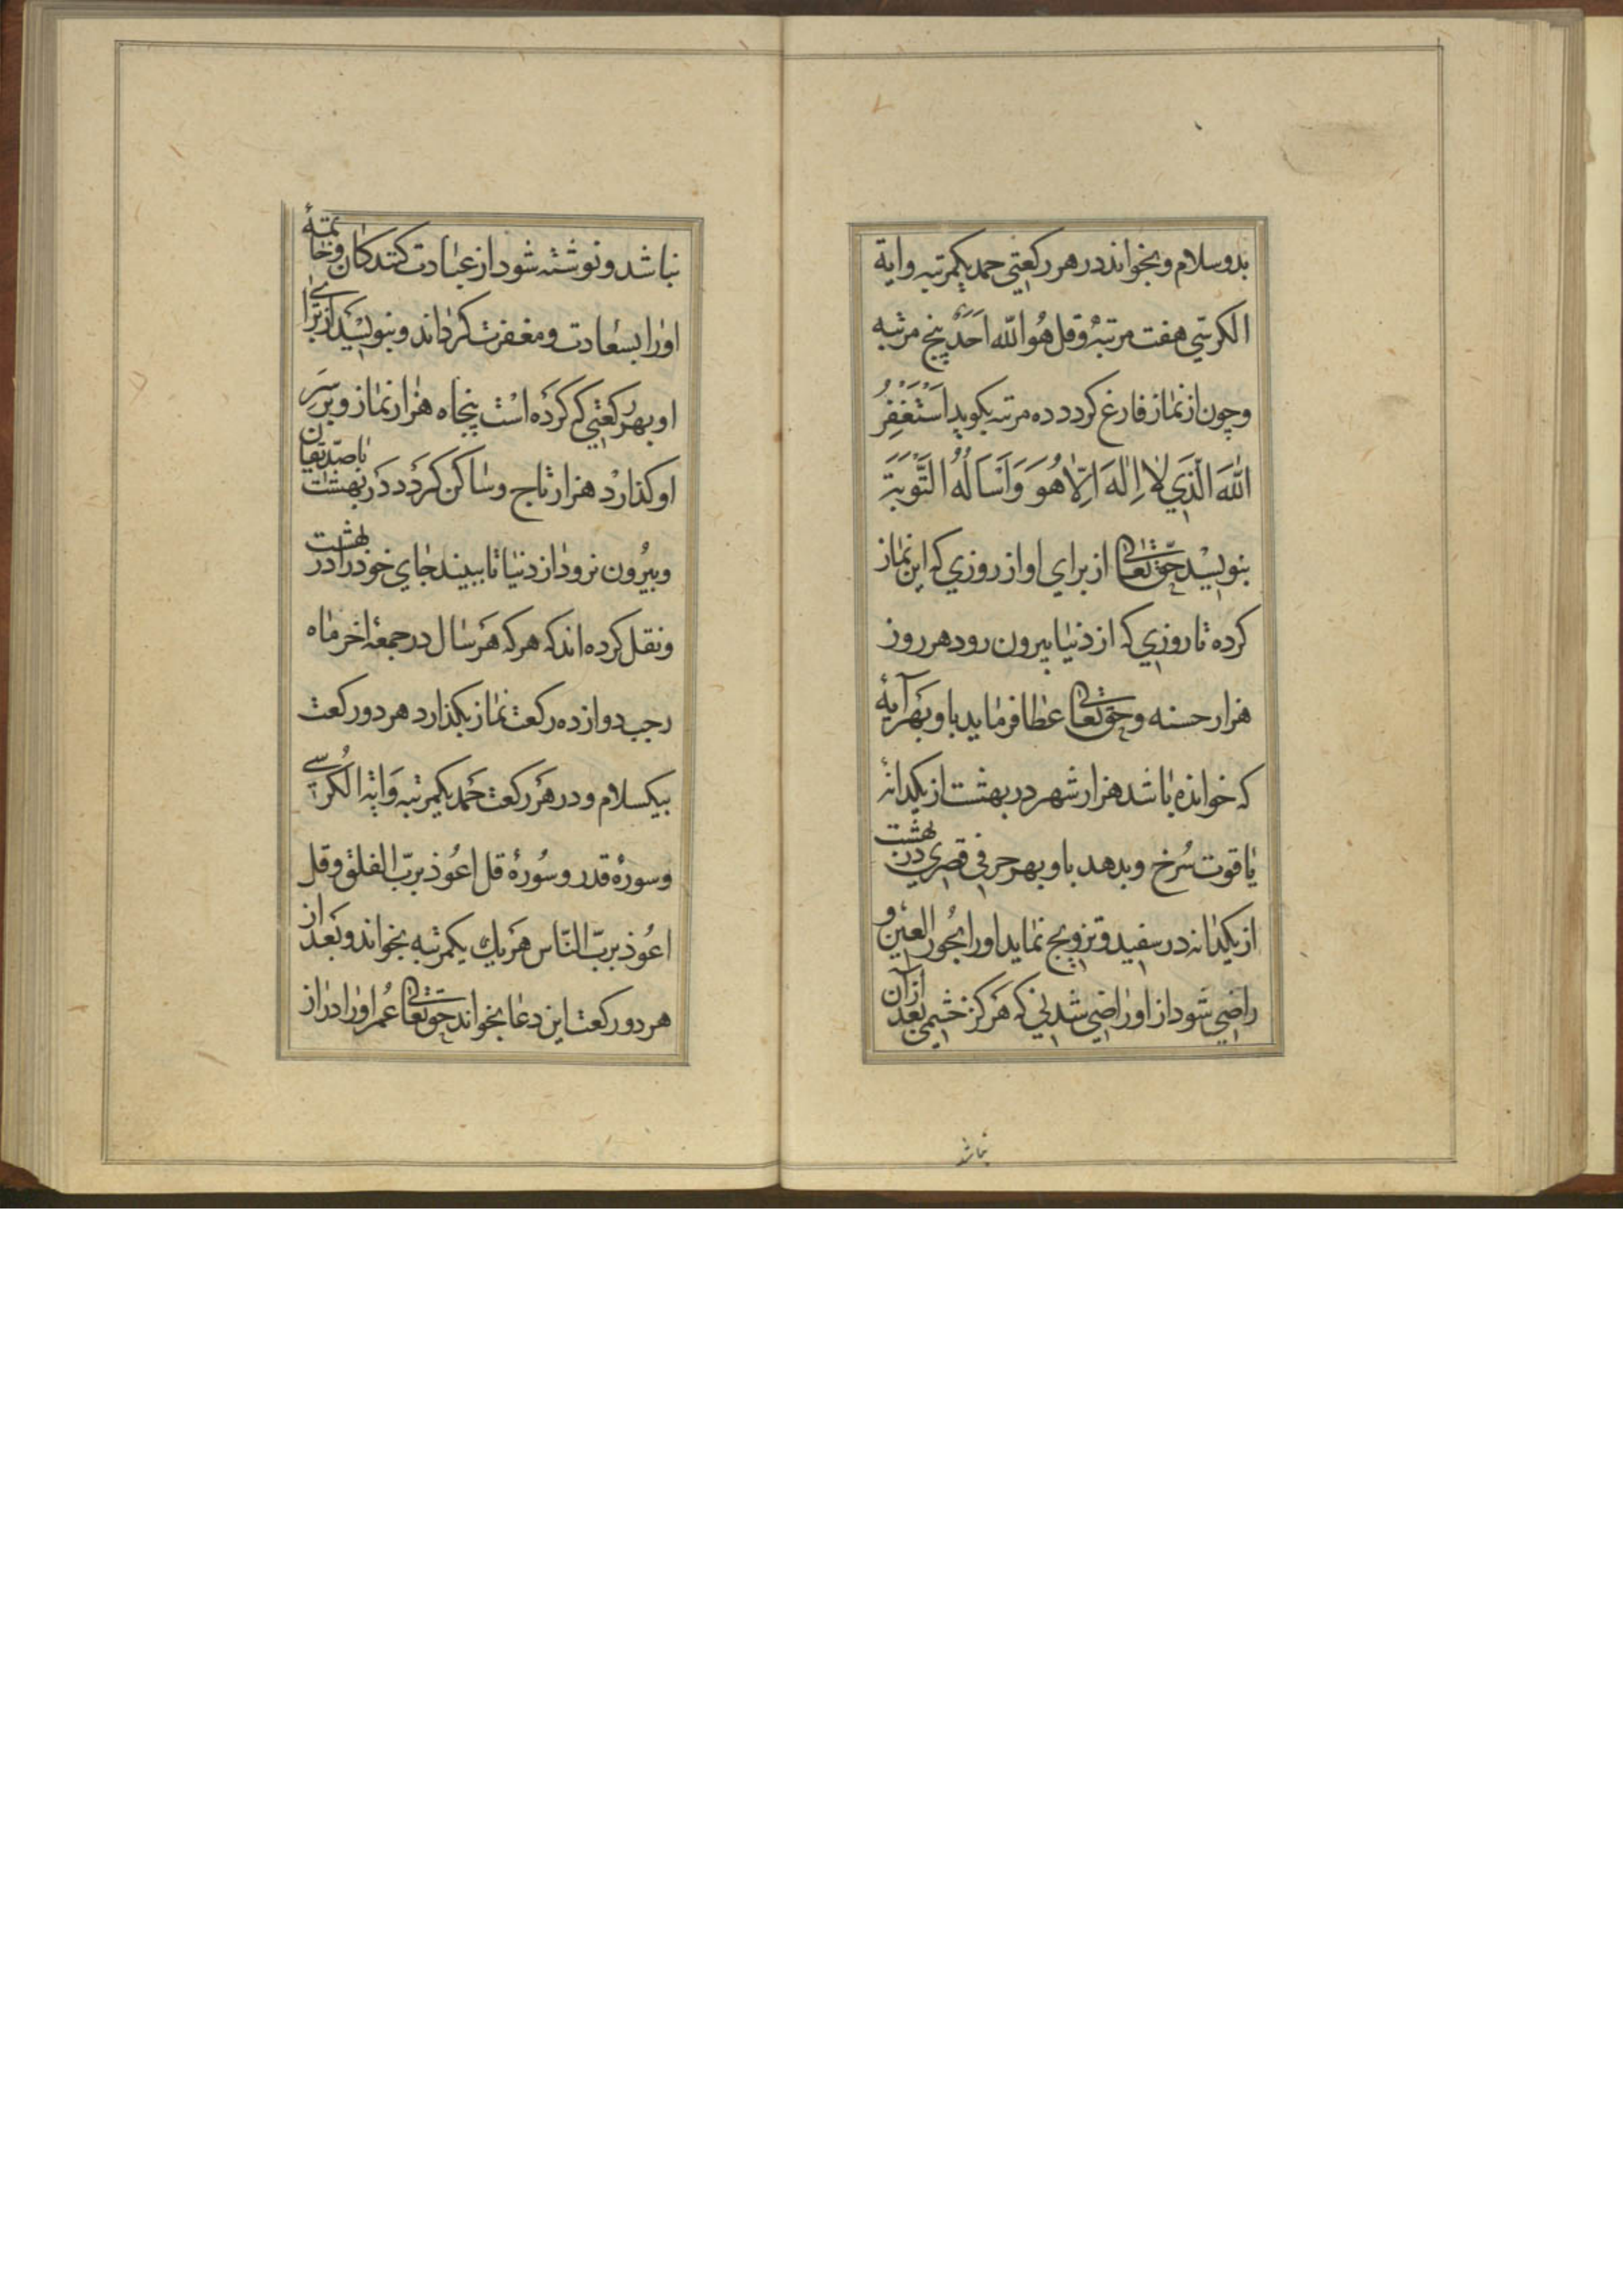 بدو سلام و بخواند در هر رکعتي حمد یکمرتبه و ایة
الکرسي هفت مرتبه و قل هُو الله اَحَدٌ پنج مرتبه
و چون از نماز فارغ کردد ده مرتبه بکوید اَسْتَغْفِرُ
اللهَ الَّذِي لا اِلٰهَ اِلّا هُوَ وَ اَسْاَلُهُ التَّوْبَةَ
بنویسد حقّ تعالی از براي او از روزي که این نماز
کرده تا روزي که از دنیا بیرون رود هر روز
هزار حسنه و حق تعالی عطا فرماید باو بهَر آیهٔ
که خوانده باشد هزار شهر در بهشت از یکدانهٔ
یاقوت سُرخ و بدهد باو بهر حرفي قصري در بهشت
از یکدانه در سفید و تزویج نماید او را بحور العین و
راضي شود از او راضي شدني که هَرکز خشمي بعد از آن
نباشد
نباشد و نوشته شود از عبادت کنندکان و خاتمهٔ
او را بسعادت و مغفرت کرداند و بنویسد از برای
او بهر رکعتي که کرده است پنجاه هزار نماز و برسَرِ
او کذارد هزار تاج و ساکن کَردد در بهشت با صدّیقان
و بیرُون نرود از دنیا تا ببیند جاي خود را در بهشت
و نقل کرده اند که هر که هَر سال در جمعهٔ اخر ماه
رجب دوازده رکعت نماز بکذارد هر دو رکعت
بیکسلام و در هَر رکعت حَمد یکمرتبه وَ ایة الکُرسي
و سورهٔ قدر و سُورهٔ قل اعُوذ بربّ الفلق و قل
اعُوذ بربّ النّاس هَر یك یکمرتبه بخواند و بَعد از
هر دو رکعت این دعا بخواند حق تعالی عُمر او را دراز